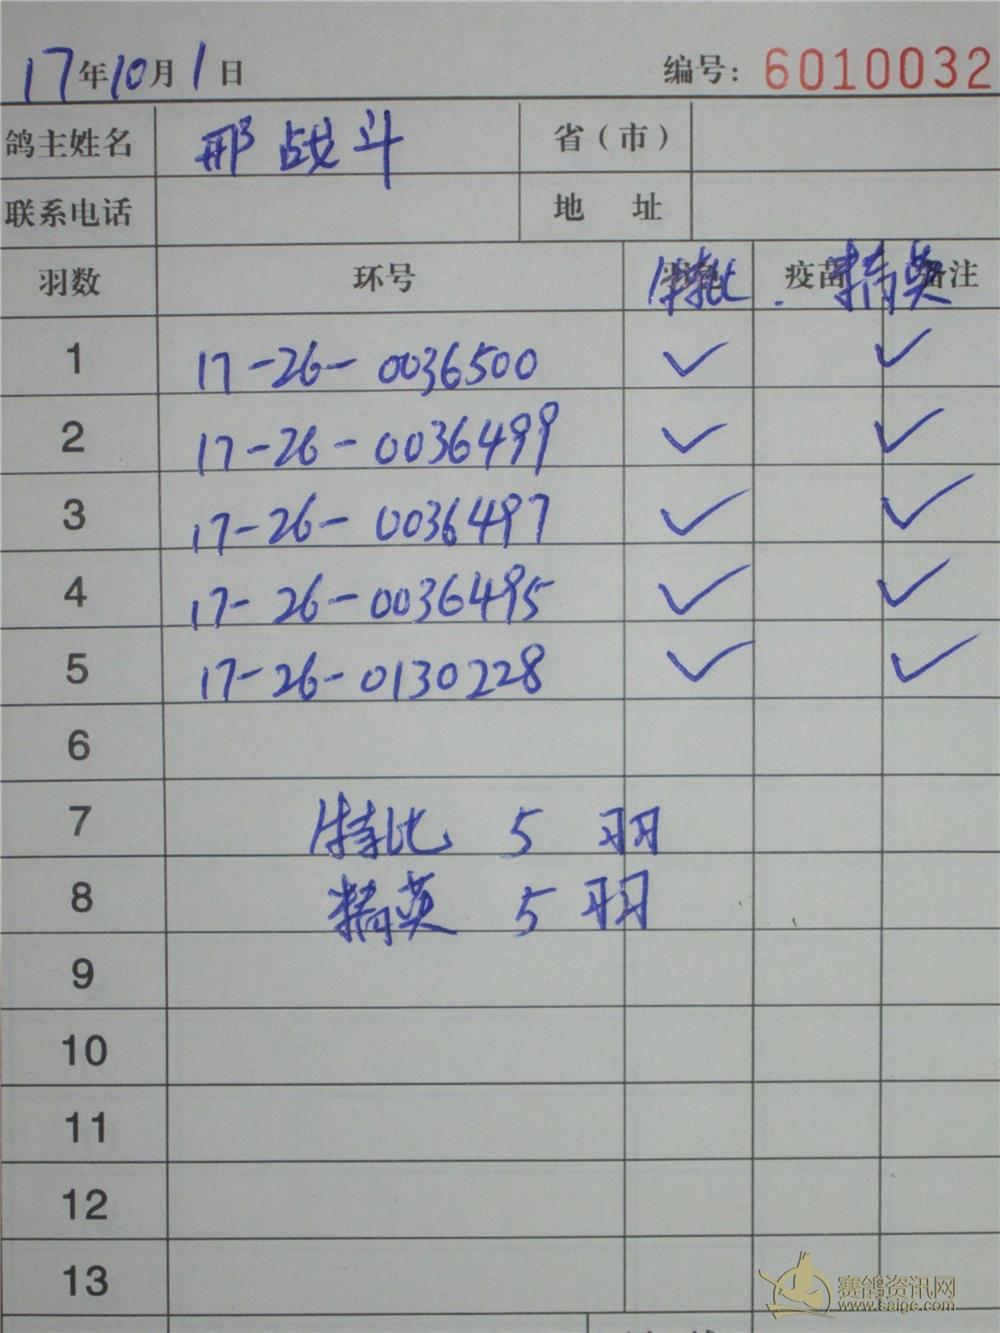 17年10月1日 编号: 6010032
鸽主姓名 邢战斗 省（市）
联系电话 地 址
羽数 环号 特比 疫苗 精英 备注
1 17-26-0036500 ✓ ✓
2 17-26-0036499 ✓ ✓
3 17-26-0036497 ✓ ✓
4 17-26-0036495 ✓ ✓
5 17-26-0130228 ✓ ✓
6
7 特比 5 羽
8 精英 5 羽
9
10
11
12
13
赛鸽资讯网
www.saige.com